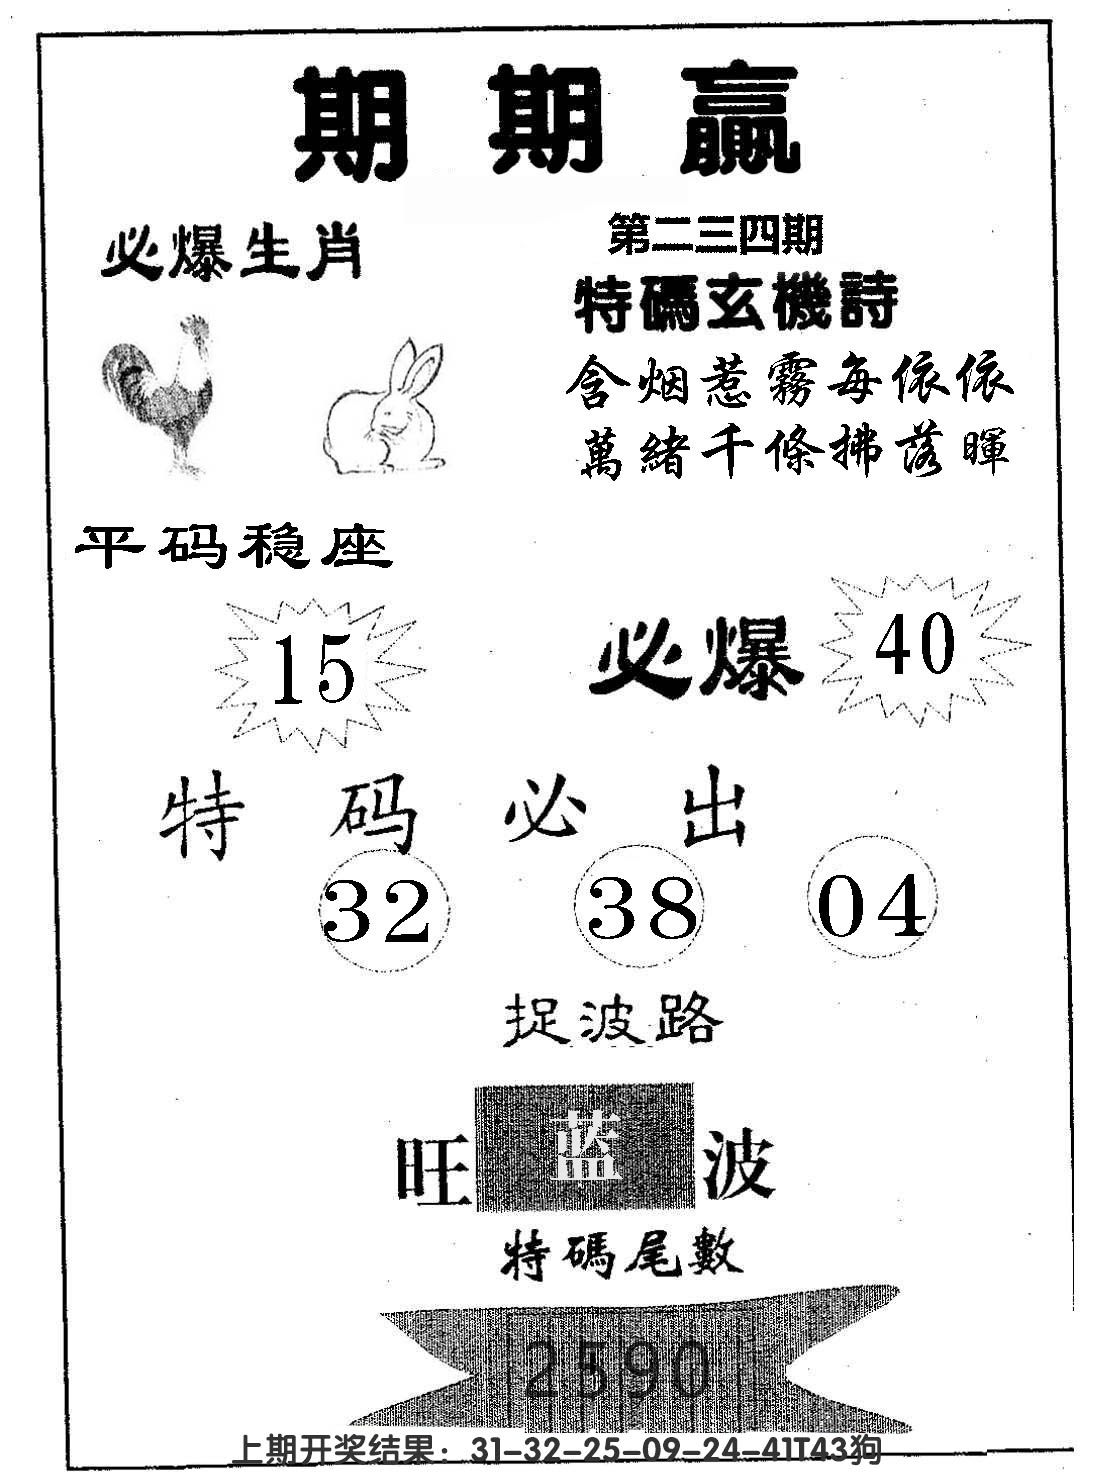 期期贏
必爆生肖
第二三四期
特碼玄機詩
含烟惹霧每依依
萬緒千條拂落暉
平码稳座
15
必爆
40
特码必出
32 38 04
捉波路
旺蓝波
特碼尾數
2590
上期开奖结果：31-32-25-09-24-41T43狗